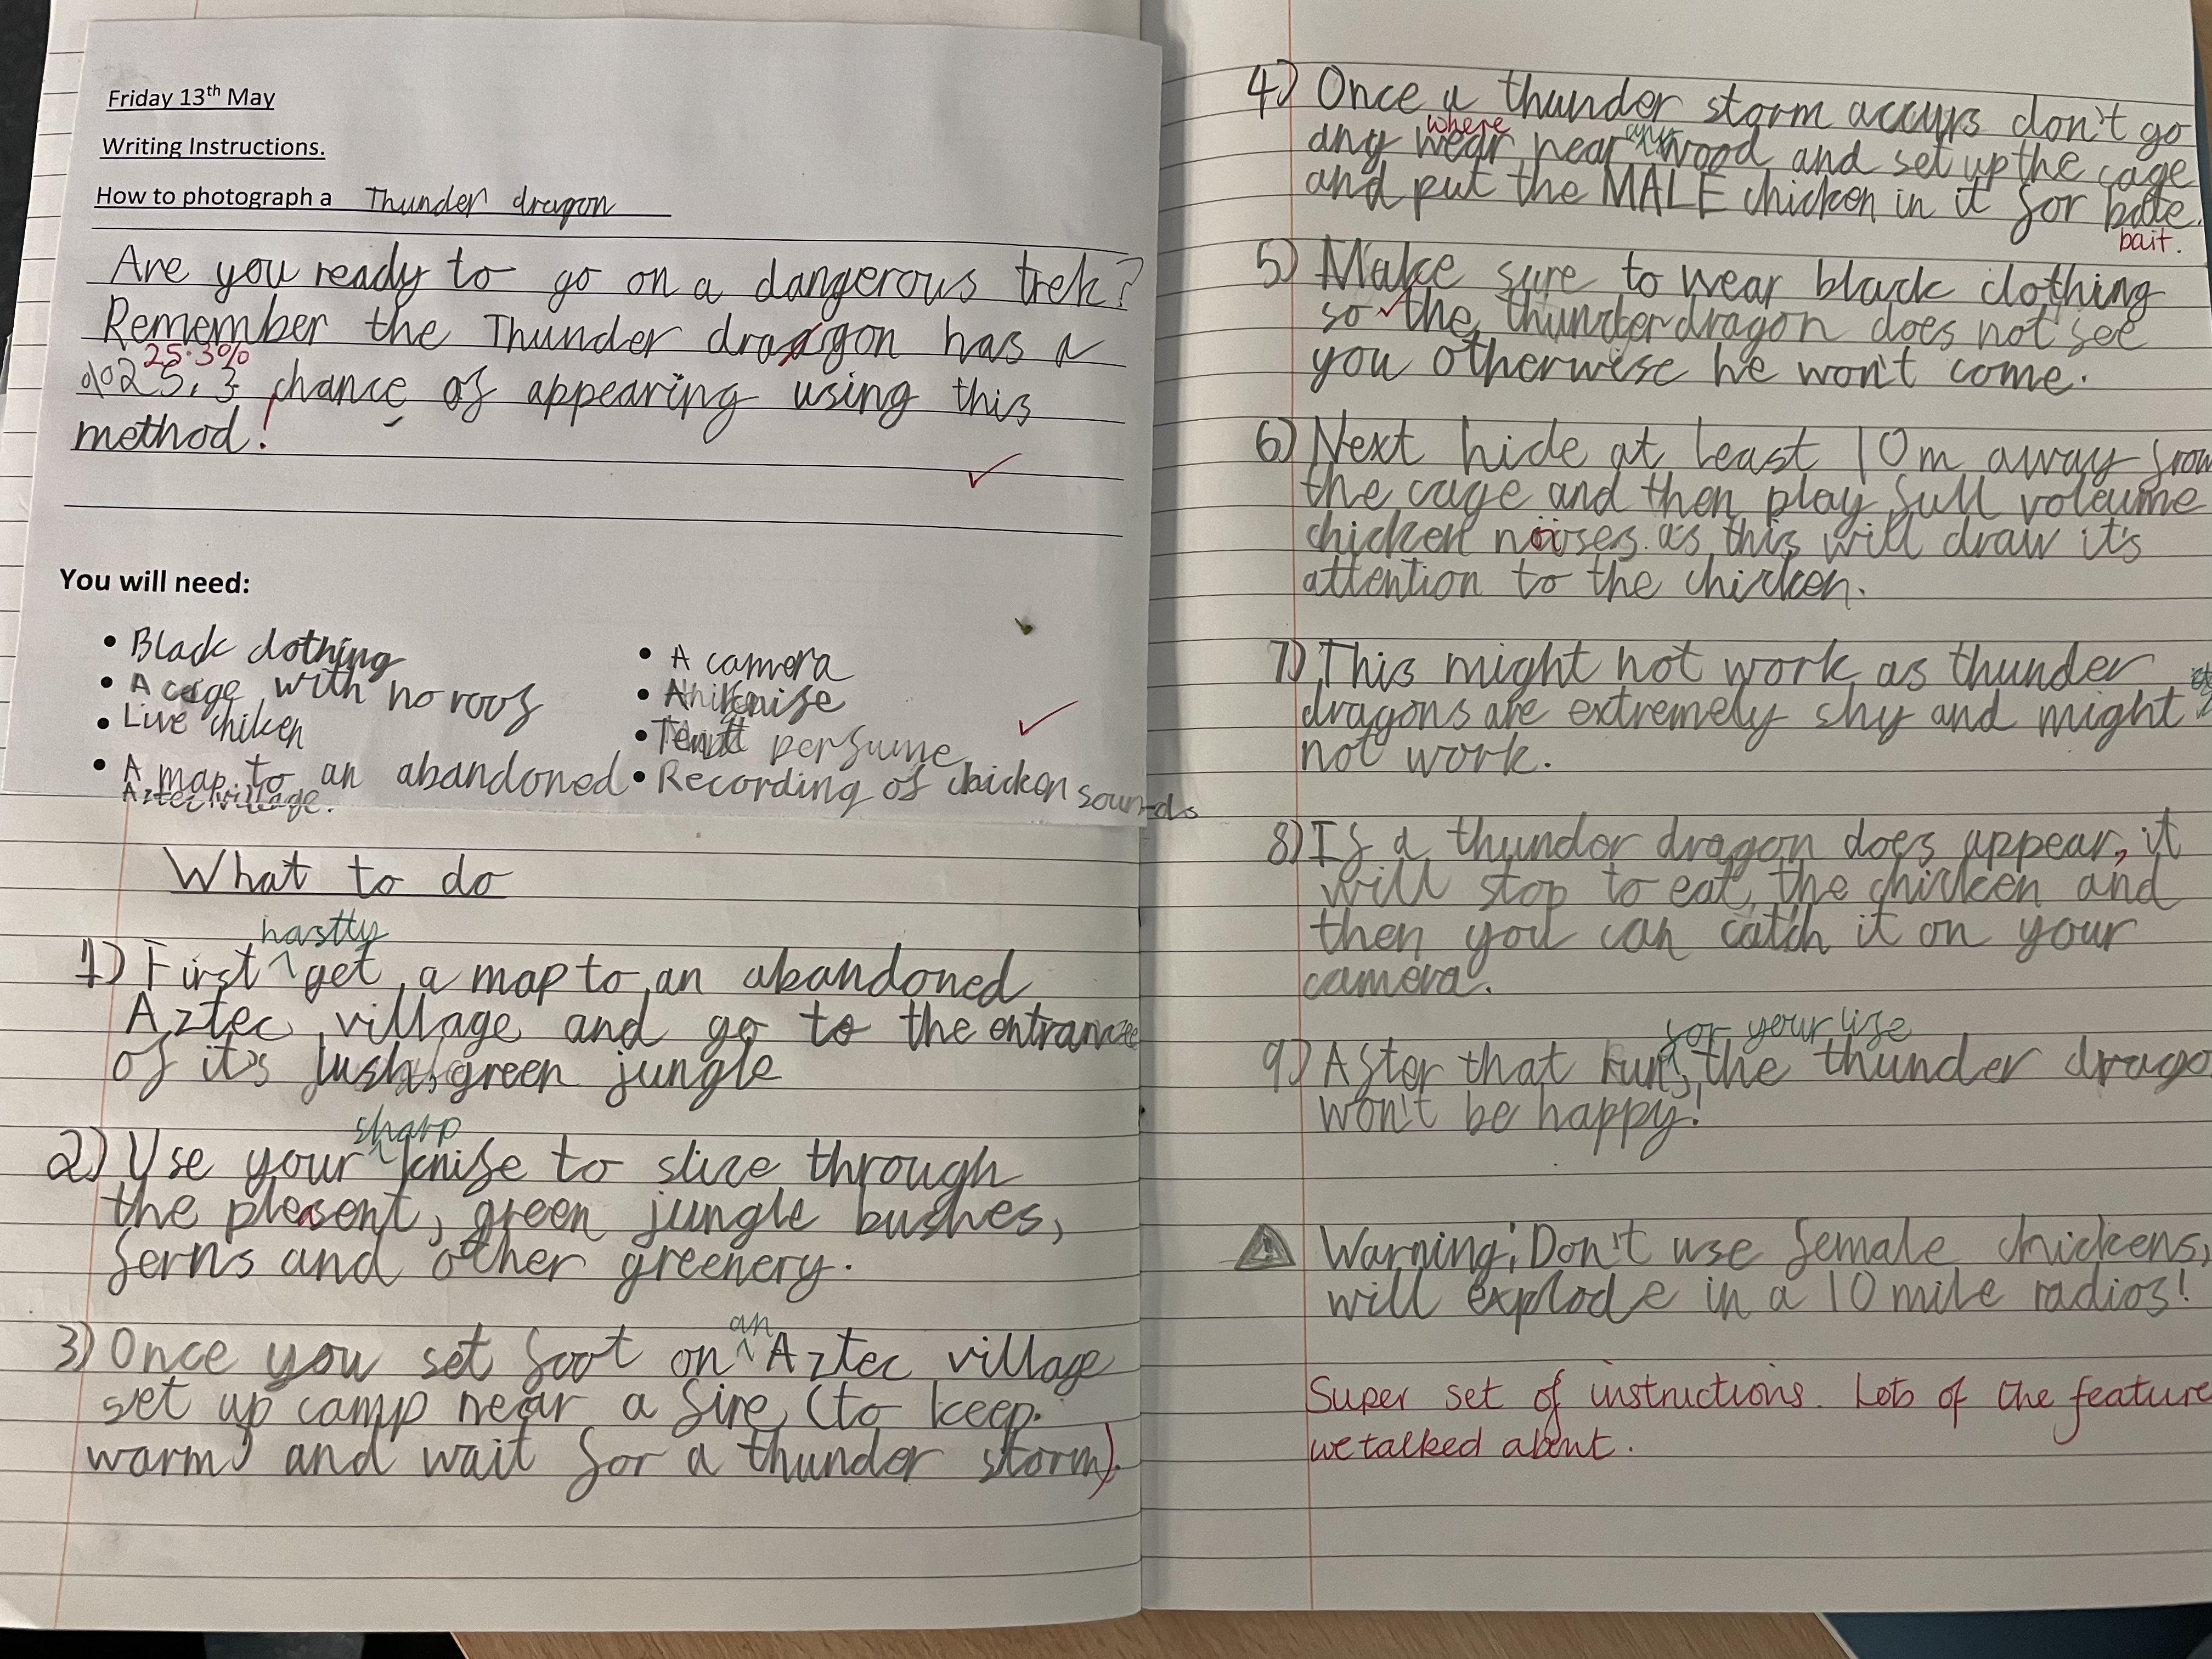 Friday 13th May
Writing Instructions.
How to photograph a Thunder dragon
Are you ready to go on a dangerous trek?
Remember the Thunder draagon has a
25.3%
%25.3 chance of appearing using this
method!
You will need:
• Black clothing
• A cage with no roof
• Live chiken
• A map to an abandoned
Aztec village.
• A camera
• A knife
• perfume
• Recording of chicken sounds
What to do
hastty
1) First ^ get a map to an abandoned
Aztec village and go to the entrance
of it's lush, green jungle
sharp
2) Use your ^ knife to slice through
the pleasent, green jungle bushes,
ferns and other greenery.
an
3) Once you set foot on ^ Aztec village
set up camp near a fire (to keep
warm) and wait for a thunder storm).
4) Once a thunder storm accurs don't go
where any
any wear near wood and set up the cage
and put the MALE chicken in it for bate.
bait.
5) Make sure to wear black clothing
so the thunder dragon does not see
you otherwise he won't come.
6) Next hide at least 10m away from
the cage and then play full voleume
chicken noises as this will draw it's
attention to the chicken.
7) This might not work as thunder
dragons are extremely shy and might
not work.
8) If a thunder dragon does appear, it
will stop to eat the chicken and
then you can catch it on your
camera.
for your life
9) After that run, the thunder drago
won't be happy!
Warning; Don't use female chickens,
will explode in a 10 mile radios!
Super set of instructions. Lots of the feature
we talked about.